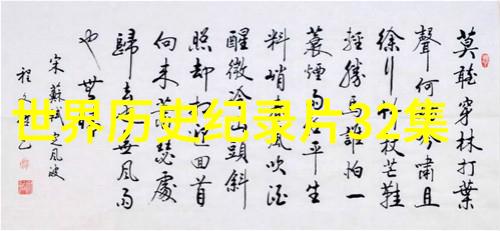 世界历史纪录片32集
莫聽穿林打葉
聲何嘯且
徐行竹杖芒鞋
輕勝馬誰怕一
蓑煙雨平生
料峭風吹酒
醒微冷山頭斜
照却迎回首
向來瑟處
歸去無風雨
也無
宋蘇軾定風波
程